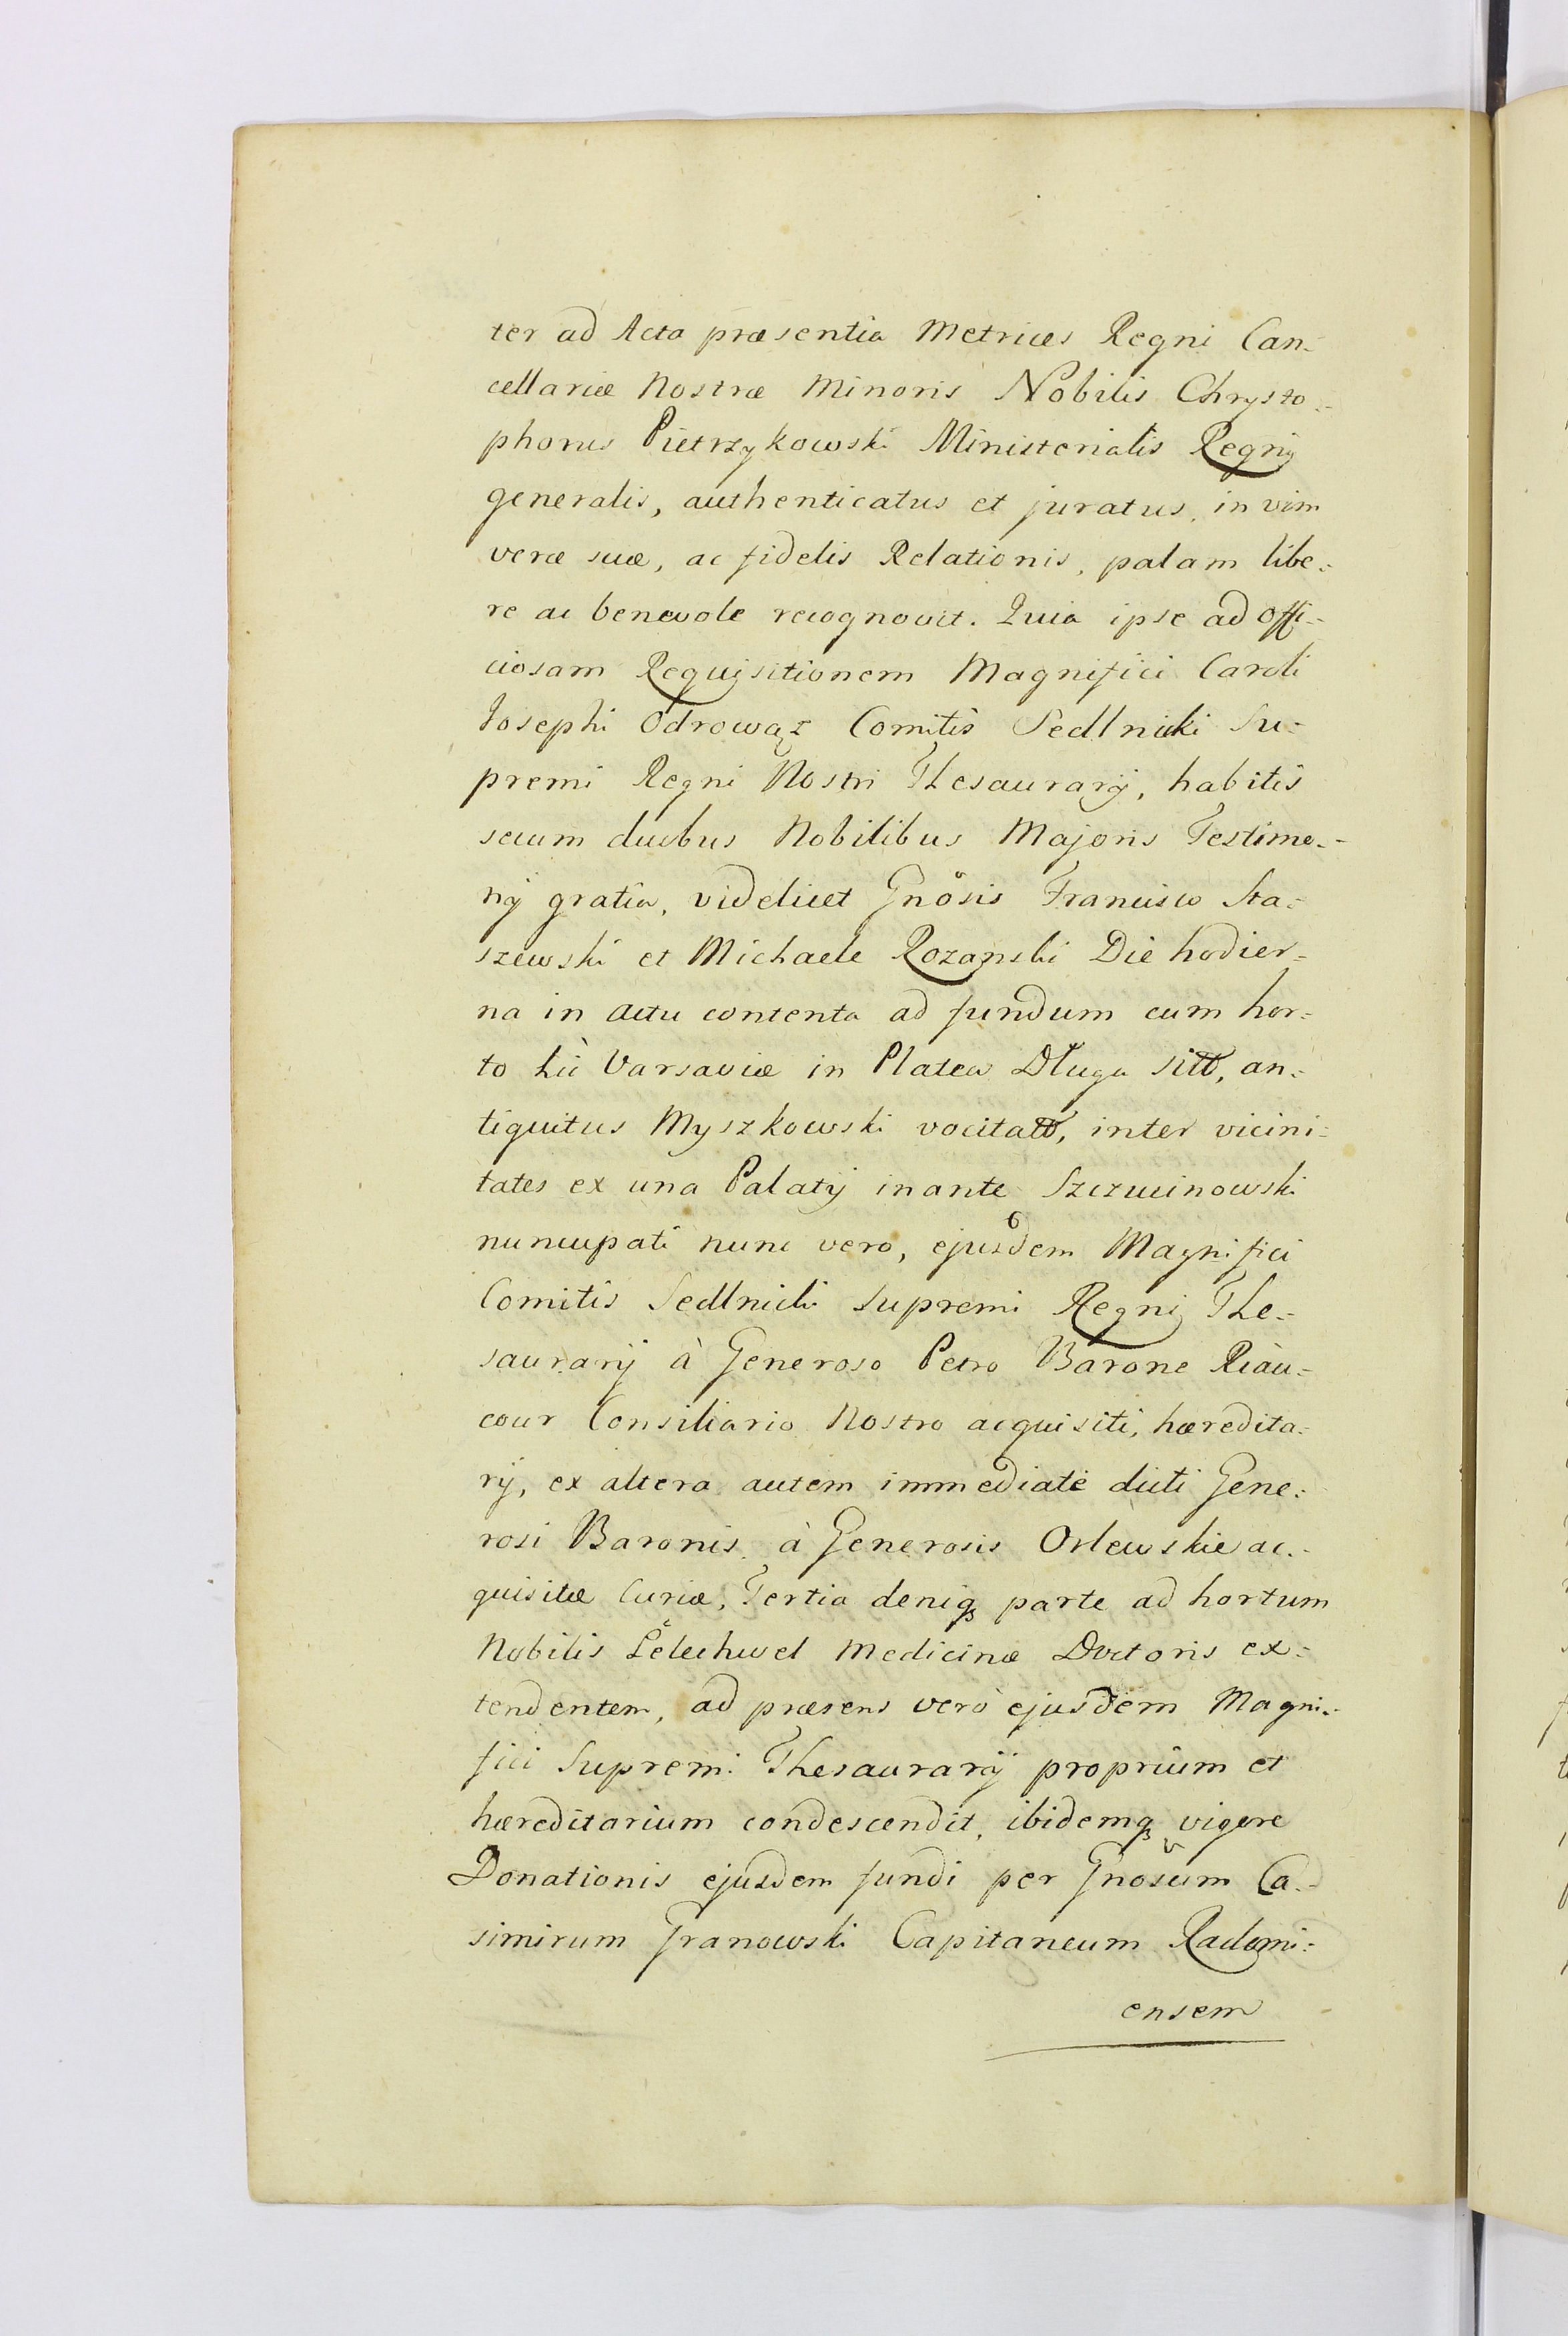 ter ad Acta præsentia Metrices Regni Can-
cellariæ Nostræ Minoris Nobilis Chrysto-
phorus Pietrzykowski Ministerialis Regni
generalis, authenticatus et juratus, in vim
veræ suæ, ac fidelis Relationis, palam libe-
re ac benevole recognovit. Quia ipse ad offi-
ciosam Requisitionem Magnifici Caroli
Josephi Odrowąz Comitis Sedlnicki Su-
premi Regni Nostri Thesaurarij, habitis
secum duobus Nobilibus Majoris Testimo-
nij gratia, videlicet Gnosis Francisco Sta-
szewski et Michaele Rozanski Die hodier-
na in actu contenta ad fundum cum hor-
to hic Varsaviæ in Platea Długa sitt, an-
tiquitus Myszkowski vocitatt, inter vicini-
tates ex una Palatij inante Szczucinowski
nuncupati nunc vero, ejusdem Magnifici
Comitis Sedlnicki Supremi Regni The-
saurarij à Generoso Petro Barone Riàu-
cour Consiliario Nostro acquisiti, hæredita-
rij, ex altera autem immediatè dicti Gene-
rosi Baronis à Generosis Orlewskie ac-
quisitæ Curiæ, Tertia deniq parte ad hortum
Nobilis Lelechwel Medicinæ Doctoris ex-
tendentem, ad præsens verò ejusdem Magni-
fici Supremi Thesaurarij proprium et
hæreditarium condescendit, ibidemq vigore
Donationis ejusdem fundi per Gnosum Ca-
simirum Granowski Capitaneum Radomi-
ensem